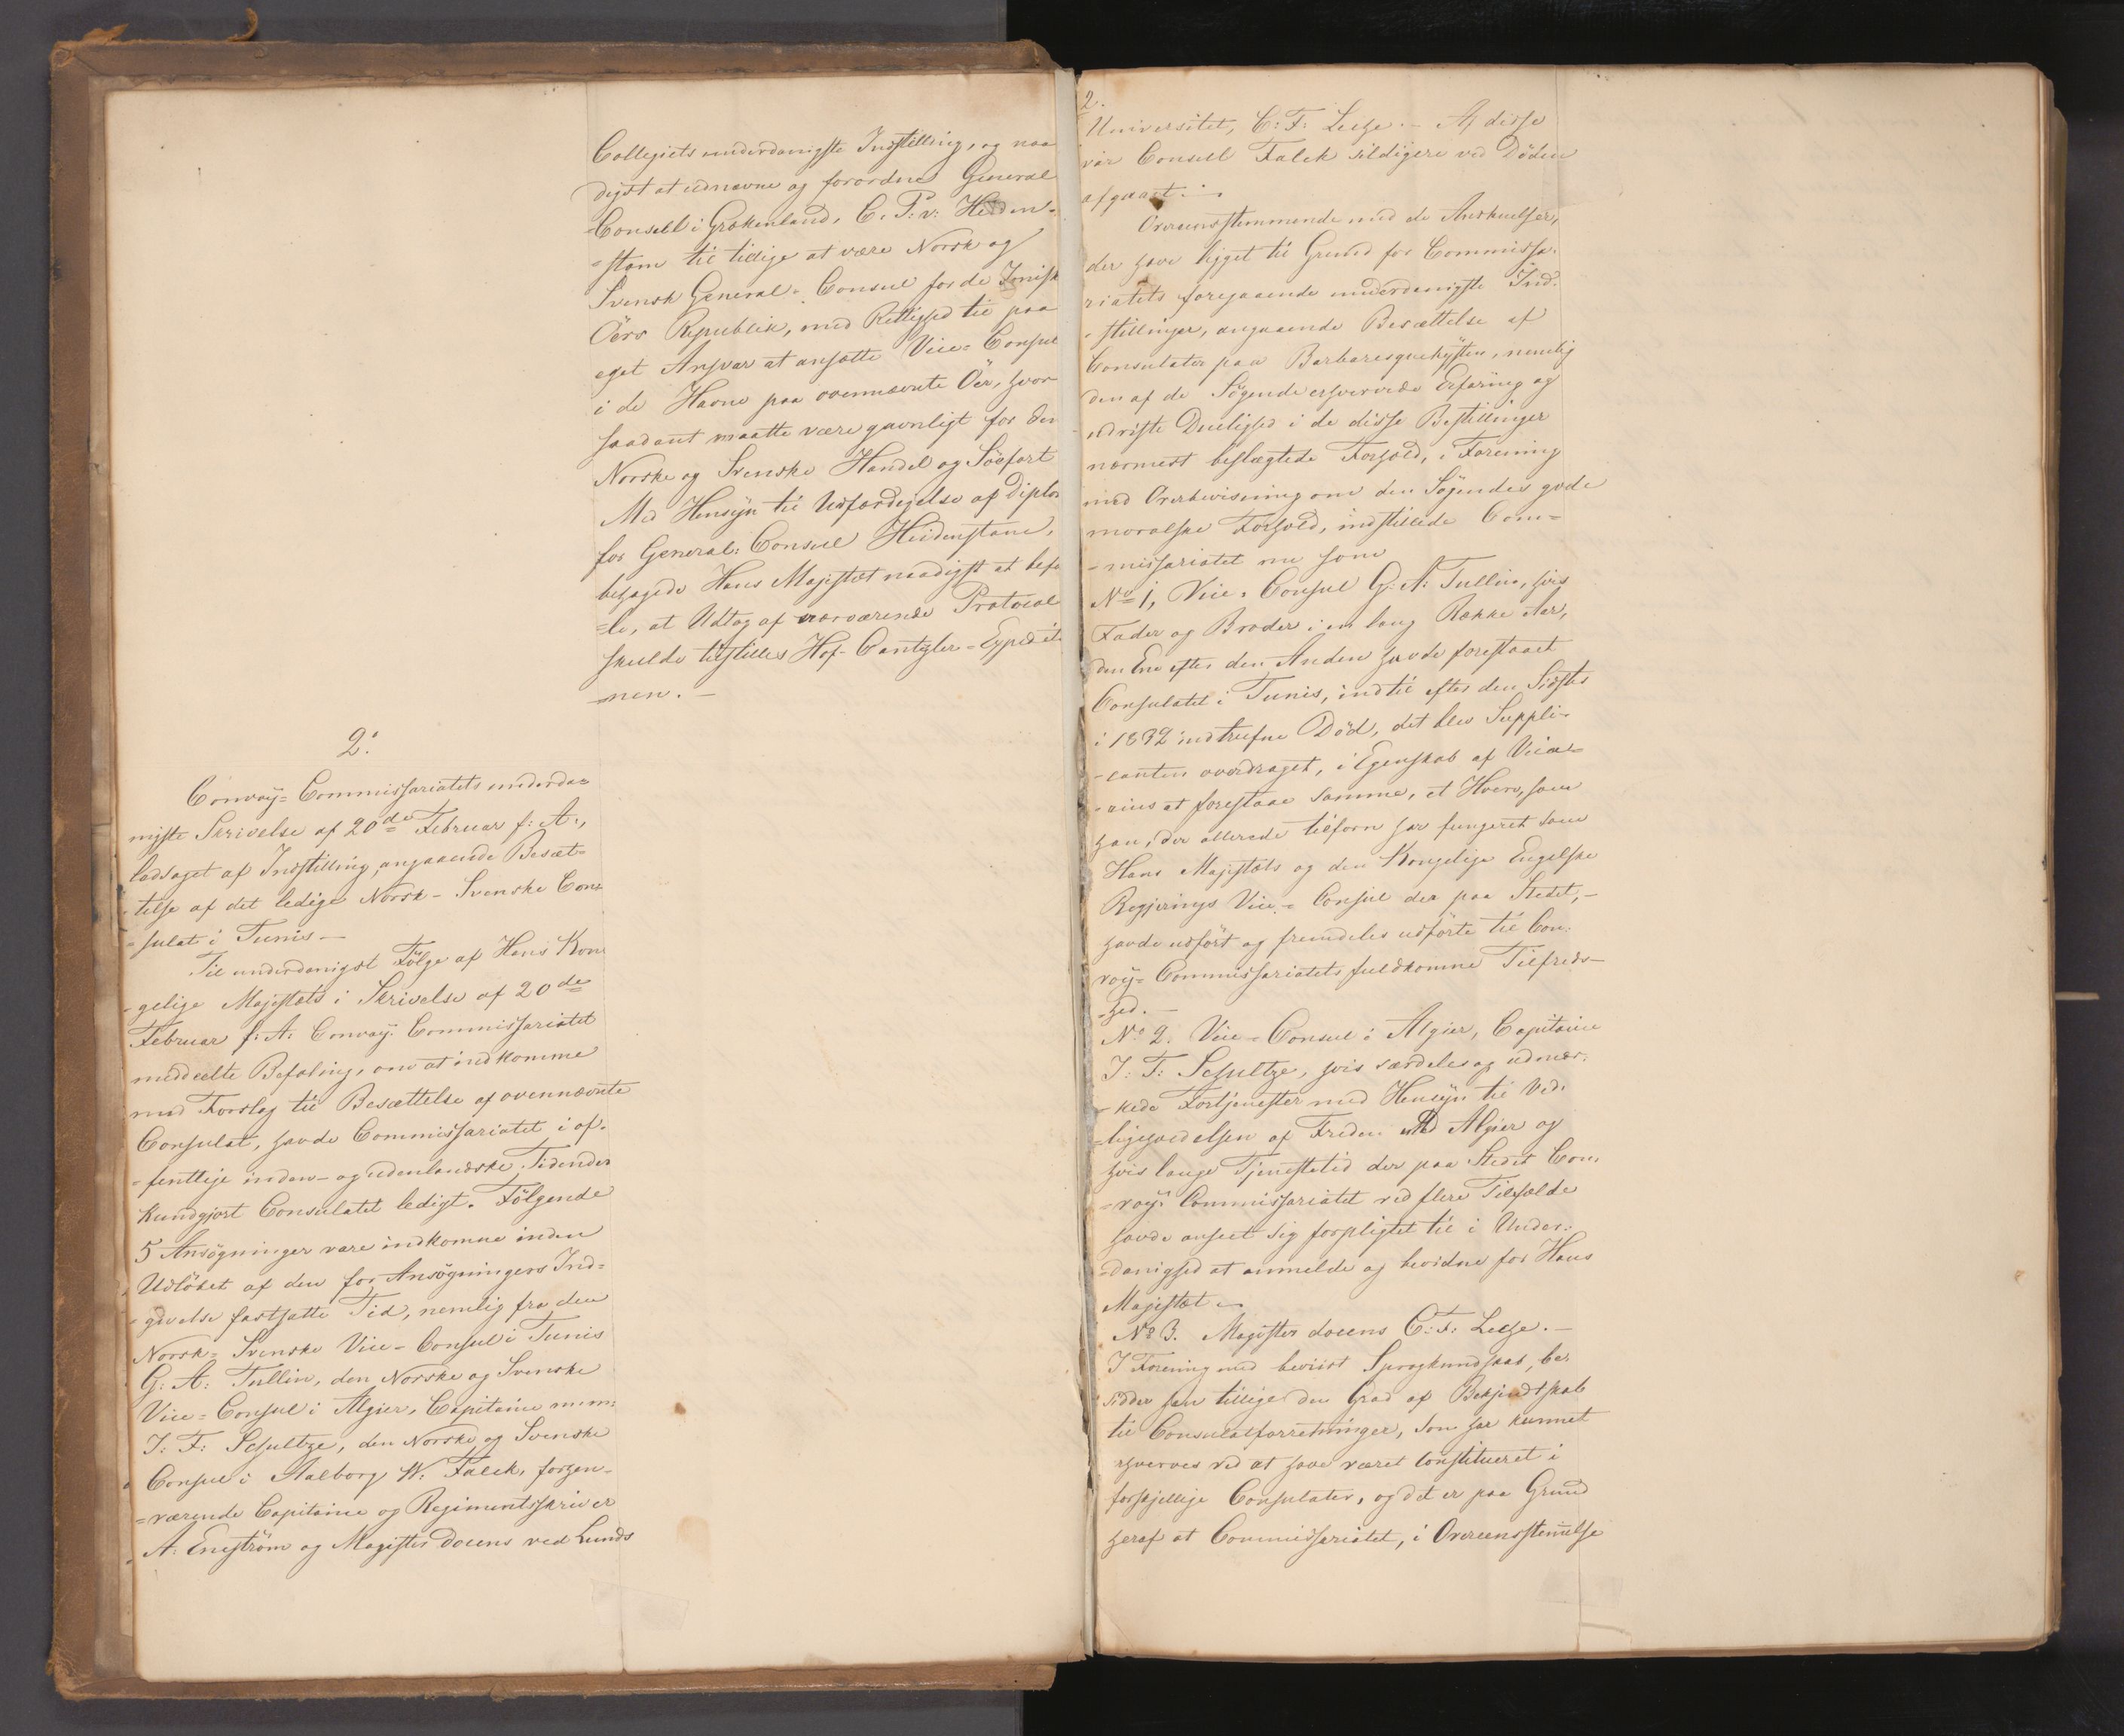 Collegiets underdanigste Indstilling, og naa
digst at udnævne og forordne General
-Consul i Grækenland, C. P. v: Heiden-
-stam til tillige at være Norsk og
Svensk General-Consul for de Jonisk
Öers Republik, med Rettighed til paa
eget Ansvar at ansætte Vice-Consul
i de Havne paa ovennævnte Öer, hvor
saadant maatte være gavnligt for den
Norske og Svenske Handel og Söefart
Med Hensyn til Udfærdigelse af Diplo
for General-Consul Heidenstam,
behagede Hans Majestæt naadigst at befa
-le, at Udtog af nærværende Protocol
skulde tilstilles Hof-Cantzler-Expeditio
-nen. -
2.
Convoy-Commissariatets underda-
nigste Skrivelse af 20de Februar f: A.,
ledsaget af Indstilling, angaaende Besæt-
-telse af det ledige Norsk-Svenske Con-
-sulat i Tunis -
Til underdanigst Fölge af Hans Kon
-gelige Majestæts i Skrivelse af 20de
Februar f: A: Convoy-Commissariatet
meddeelte Befaling, om at indkomme
med Forslag til Besættelse af ovennævnte
Consulat, havde Commissariatet i of-
-fentlige inden- og udenlandske Tidender
kundgjort Consulatet ledigt. Fölgende
5 Ansögninger vare indkomne inden
Udlöbet af den for Ansögningers Ind-
-givelse fastsatte Tid, nemlig fra den
Norsk-Svenske Vice-Consul i Tunis
G: A: Tullin, den Norske og Svenske
Vice-Consul i Algier, Capitaine m.m:
J: F: Schultze, den Norske og Svenske
Consul i Aalborg W. Falck, forhen-
-værende Capitaine og Regimentsskriver
A. Eneström og Magister docens ved Lunds
2.
Universitet, C: F: Leche. - Af disse
var Consul Falck sildigere ved Döden
afgaaet. -
Overeensstemmende med de Anskuelser,
der have ligget til Grund for Commissa-
riatets foregaaende underdanigste Ind-
-stillinger, angaaende Besættelse af
Consulater paa Barbaresquekysten, nemlig
den af de Sögende erhvervede Erfaring og
udviste Duelighed i de disse Bestillinger
nærmest beslægtede Forhold, i Forening
med Overbeviisning om den Sögendes gode
moralske Forhold, indstillede Com-
-missariatet nu som
No 1, Vice-Consul G: A: Tullin, hvis
Fader og Broder i en lang Række Aar,
den Ene efter den Anden havde forestaaet
Consulatet i Tunis, indtil efter den Sidstes
i 1832 indtrufne Död, det blev Suppli-
-canten overdraget, i Egenskab af Vica-
-rius at forestaae samme, et Hverv, som
han, der allerede tilforn har fungeret som
Hans Majestæts og den Kongelige Engelske
Regjerings Vice-Consul der paa Stedet, -
havde udfört og fremdeles udförte til Con-
voy-Commissariatets fuldkomne Tilfreds-
-hed. -
No 2. Vice-Consul i Algier, Capitaine
J: F: Schultze, hvis særdeles og udmær-
-kede Fortjenester med Hensyn til Ved-
-ligeholdelsen af Freden med Algier og
hvis lange Tjenestetid der paa Stedet Con-
-voy-Commissariatet ved flere Tilfælde
havde anseet sig forpligtet til i Under-
-danighed at anmelde og bevidne for Hans
Majestæt. -
No 3. Magister docens C: F: Leche. -
I Forening med beviist Sprogkundskab, be-
sidder han tillige den Grad af Bekjendtskab
til Consulatforretninger, som har kunnet
erhverves ved at have været constitueret i
forskjellige Consulater, og det er paa Grund
heraf at Commissariatet, i Overeensstemmelse